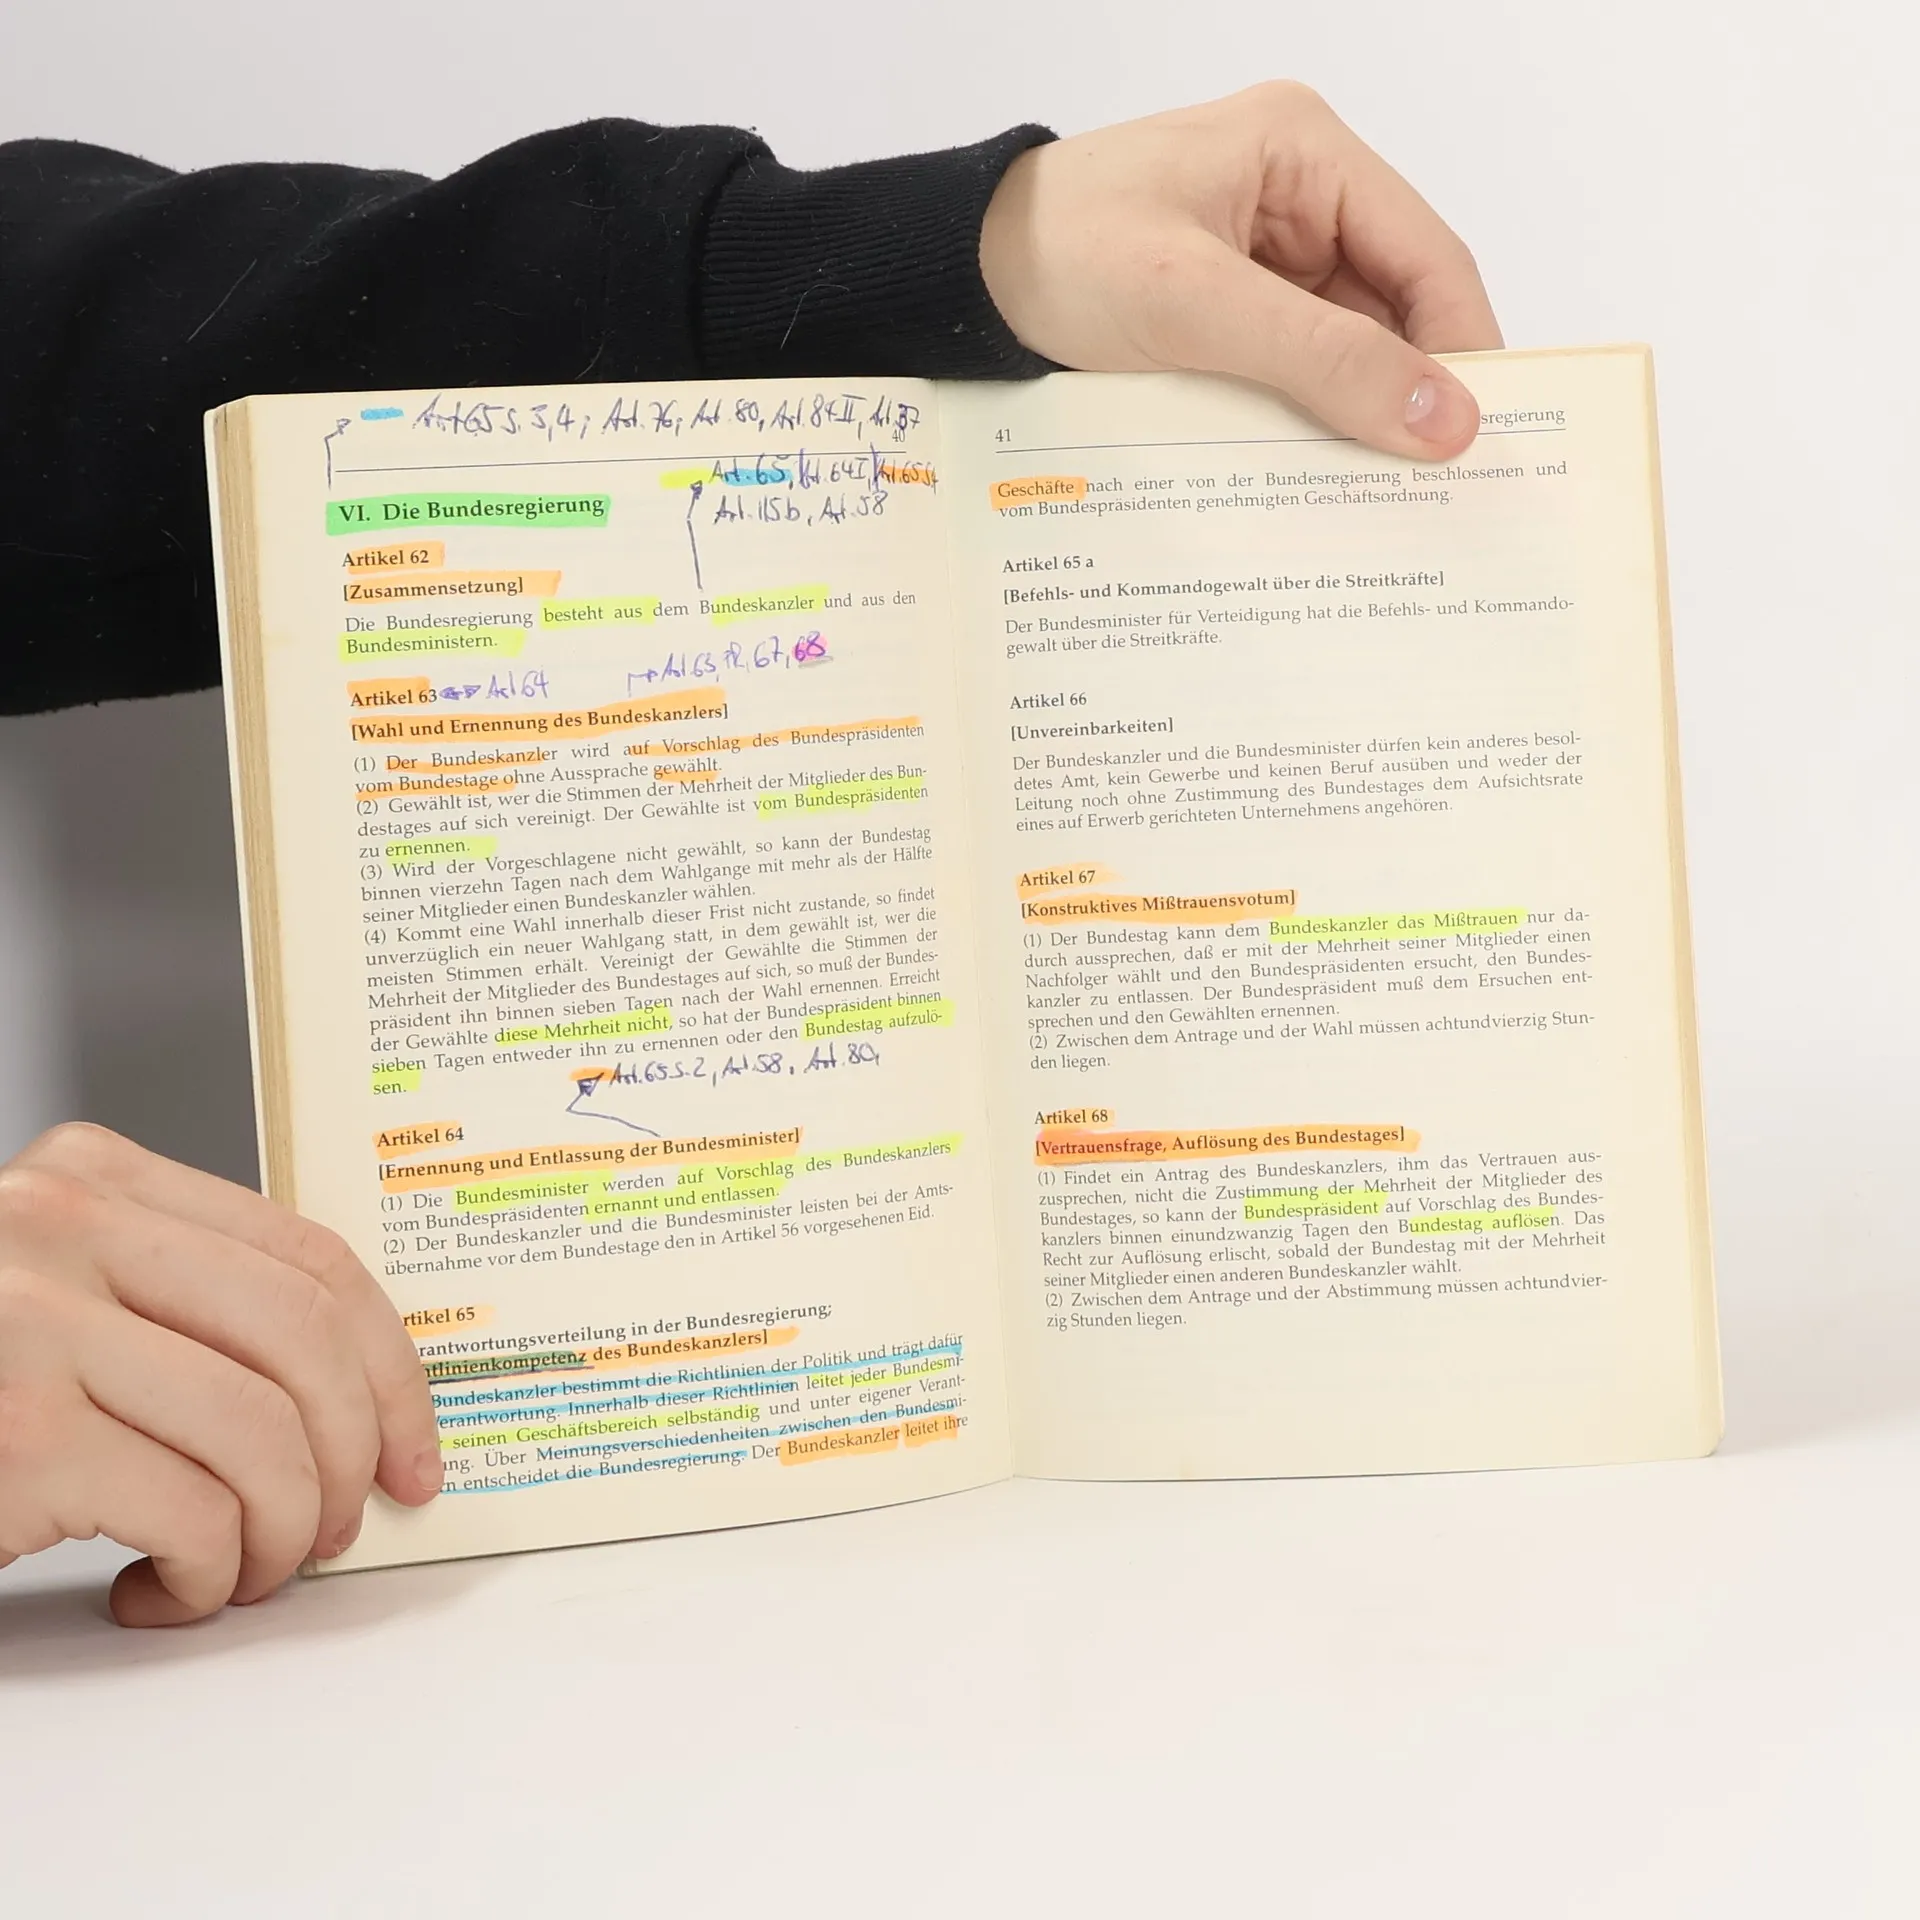 Art 65 S. 3, 4; Art. 76; Art. 80, Art. 84 II, Art. 37
40
Art. 65, Art. 64 I, Art. 65 S4
Art. 115b, Art. 58
VI. Die Bundesregierung
Artikel 62
[Zusammensetzung]
Die Bundesregierung besteht aus dem Bundeskanzler und aus den
Bundesministern.
Art 63, 67, 68
Artikel 63 Art 64
[Wahl und Ernennung des Bundeskanzlers]
(1) Der Bundeskanzler wird auf Vorschlag des Bundespräsidenten
vom Bundestage ohne Aussprache gewählt.
(2) Gewählt ist, wer die Stimmen der Mehrheit der Mitglieder des Bun-
destages auf sich vereinigt. Der Gewählte ist vom Bundespräsidenten
zu ernennen.
(3) Wird der Vorgeschlagene nicht gewählt, so kann der Bundestag
binnen vierzehn Tagen nach dem Wahlgange mit mehr als der Hälfte
seiner Mitglieder einen Bundeskanzler wählen.
(4) Kommt eine Wahl innerhalb dieser Frist nicht zustande, so findet
unverzüglich ein neuer Wahlgang statt, in dem gewählt ist, wer die
meisten Stimmen erhält. Vereinigt der Gewählte die Stimmen der
Mehrheit der Mitglieder des Bundestages auf sich, so muß der Bundes-
präsident ihn binnen sieben Tagen nach der Wahl ernennen. Erreicht
der Gewählte diese Mehrheit nicht, so hat der Bundespräsident binnen
sieben Tagen entweder ihn zu ernennen oder den Bundestag aufzulö-
sen.
Art. 65 S. 2, Art. 58, Art. 80,
Artikel 64
[Ernennung und Entlassung der Bundesminister]
(1) Die Bundesminister werden auf Vorschlag des Bundeskanzlers
vom Bundespräsidenten ernannt und entlassen.
(2) Der Bundeskanzler und die Bundesminister leisten bei der Amts-
übernahme vor dem Bundestage den in Artikel 56 vorgesehenen Eid.
rtikel 65
rantwortungsverteilung in der Bundesregierung;
tlinienkompetenz des Bundeskanzlers]
Bundeskanzler bestimmt die Richtlinien der Politik und trägt dafür
erantwortung. Innerhalb dieser Richtlinien leitet jeder Bundesmi-
r seinen Geschäftsbereich selbständig und unter eigener Verant-
ung. Über Meinungsverschiedenheiten zwischen den Bundesmi-
n entscheidet die Bundesregierung. Der Bundeskanzler leitet ihre
41 sregierung
Geschäfte nach einer von der Bundesregierung beschlossenen und
vom Bundespräsidenten genehmigten Geschäftsordnung.
Artikel 65 a
[Befehls- und Kommandogewalt über die Streitkräfte]
Der Bundesminister für Verteidigung hat die Befehls- und Kommando-
gewalt über die Streitkräfte.
Artikel 66
[Unvereinbarkeiten]
Der Bundeskanzler und die Bundesminister dürfen kein anderes besol-
detes Amt, kein Gewerbe und keinen Beruf ausüben und weder der
Leitung noch ohne Zustimmung des Bundestages dem Aufsichtsrate
eines auf Erwerb gerichteten Unternehmens angehören.
Artikel 67
[Konstruktives Mißtrauensvotum]
(1) Der Bundestag kann dem Bundeskanzler das Mißtrauen nur da-
durch aussprechen, daß er mit der Mehrheit seiner Mitglieder einen
Nachfolger wählt und den Bundespräsidenten ersucht, den Bundes-
kanzler zu entlassen. Der Bundespräsident muß dem Ersuchen ent-
sprechen und den Gewählten ernennen.
(2) Zwischen dem Antrage und der Wahl müssen achtundvierzig Stun-
den liegen.
Artikel 68
[Vertrauensfrage, Auflösung des Bundestages]
(1) Findet ein Antrag des Bundeskanzlers, ihm das Vertrauen aus-
zusprechen, nicht die Zustimmung der Mehrheit der Mitglieder des
Bundestages, so kann der Bundespräsident auf Vorschlag des Bundes-
kanzlers binnen einundzwanzig Tagen den Bundestag auflösen. Das
Recht zur Auflösung erlischt, sobald der Bundestag mit der Mehrheit
seiner Mitglieder einen anderen Bundeskanzler wählt.
(2) Zwischen dem Antrage und der Abstimmung müssen achtundvier-
zig Stunden liegen.